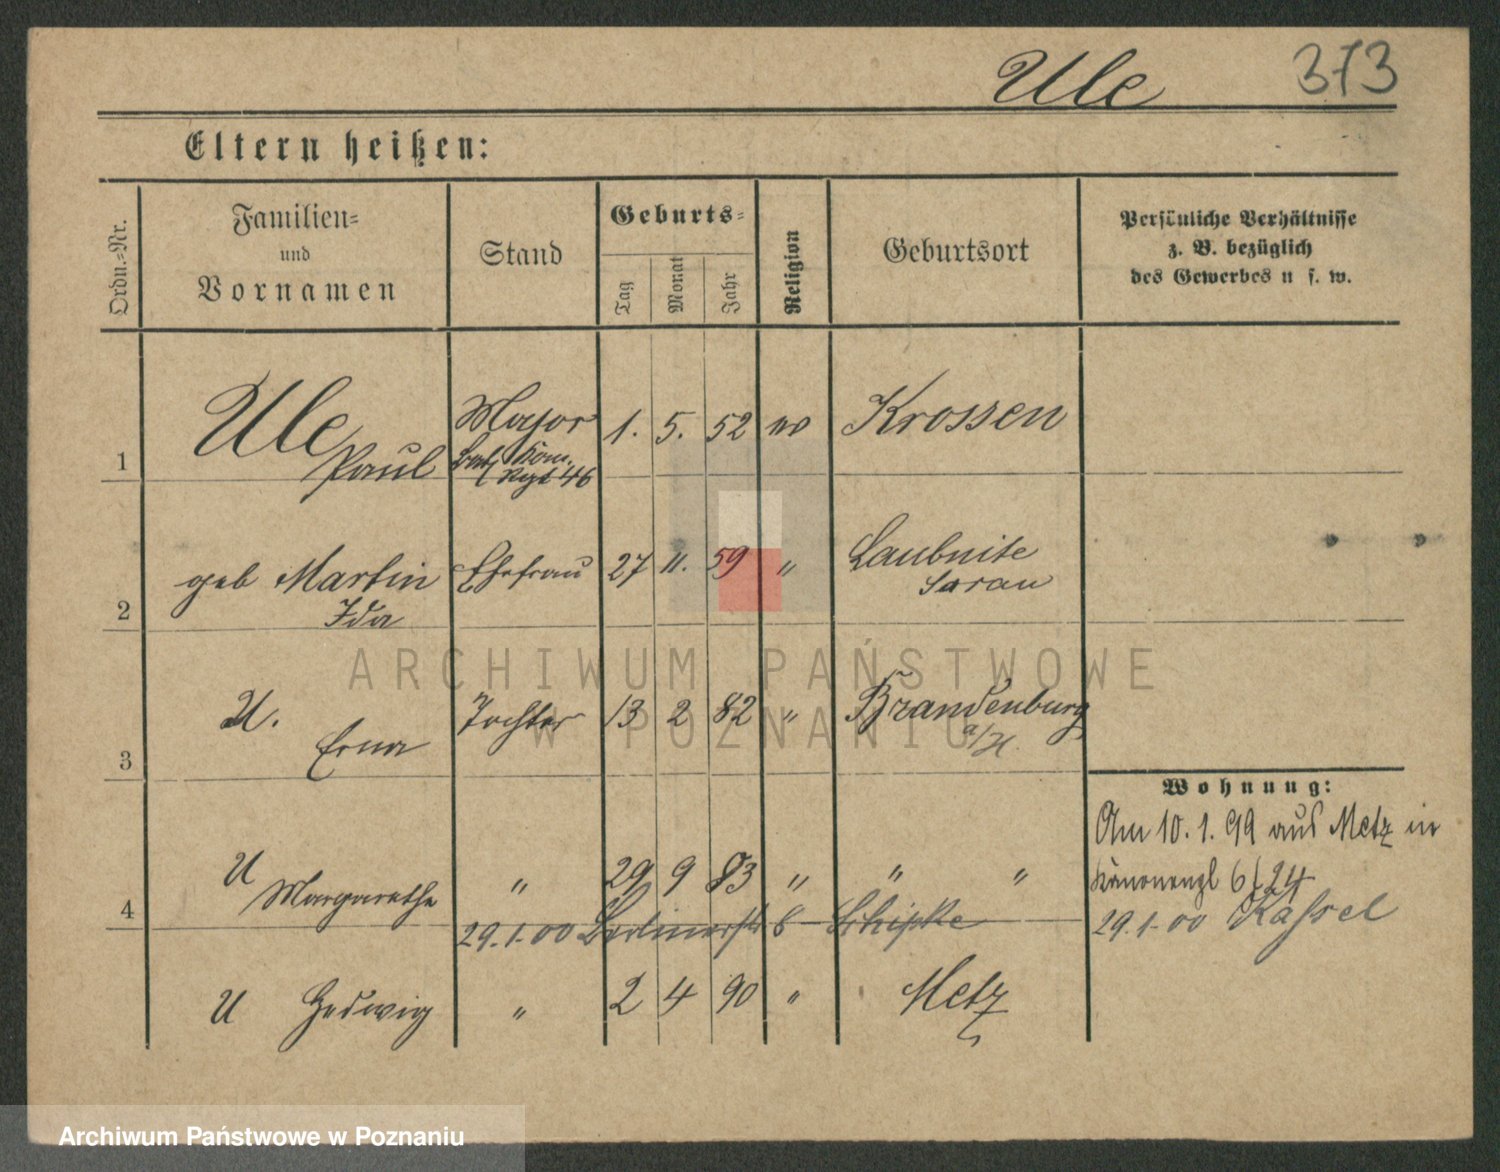 Ule 373
Eltern heißen:
Ordn.-Nr.
Familien-
und
Vornamen
Stand
Geburts-
Tag
Monat
Jahr
Religion
Geburtsort
Persönliche Verhältnisse
z. B. bezüglich
des Gewerbes u. s. w.
1
Ule
Paul
Major
Kom.
Rgt 46
1. 5. 52
Krossen
2
geb Martin
Ida
Ehefrau
27 11. 59 "
Laubnitz
Sorau
3
U.
Erna
Tochter
13 2 82 "
Brandenburg
a/H.
Wohnung:
Am 10. 1. 99 aus Metz in
Kanonenpl 6
29.1.00 Kassel
4
U
Margarethe
" 29 9 83 " " "
29.1.00 Berlinerstr 8 Schipke
U Hedwig " 2 4 90 " Metz
ARCHIWUM PAŃSTWOWE
W POZNANIU
Archiwum Państwowe w Poznaniu